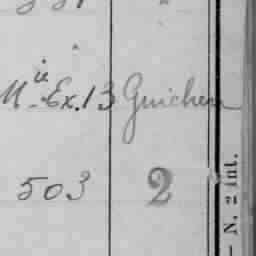 Mie Ex. 13 Guichen
503 2
— N. 2 int.